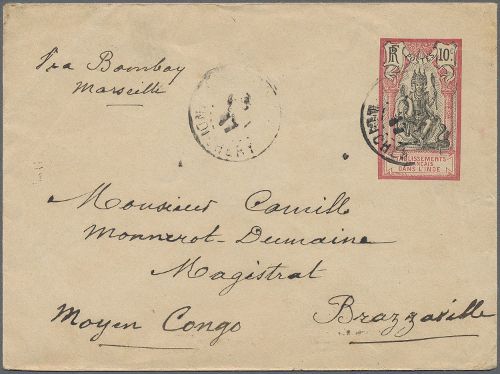 Via Bombay
Marseille
RF
10 c.
ÉTABLISSEMENTS
FRANÇAIS
DANS L'INDE
Monsieur Camille
Monnerot-Dumaine
Magistrat
Moyen Congo Brazzaville